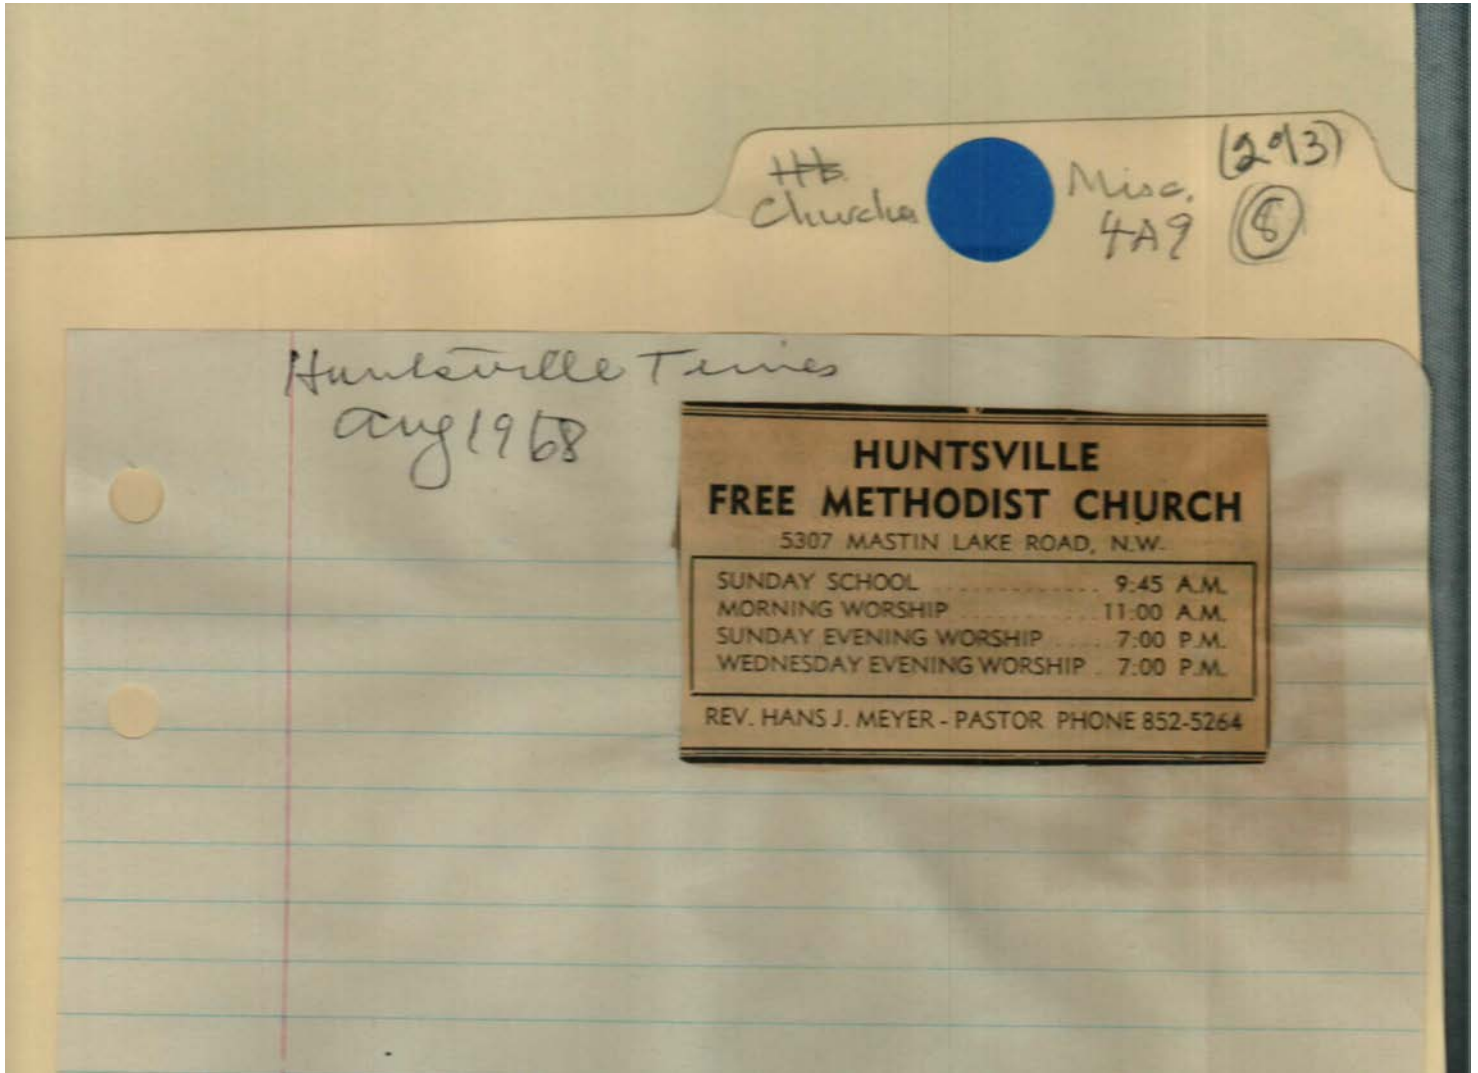 Hb.
Churches
Misc.
4A9
(293)
8
Huntsville Times
Aug 1968
HUNTSVILLE
FREE METHODIST CHURCH
5307 MASTIN LAKE ROAD, N.W.
SUNDAY SCHOOL ............. 9:45 A.M.
MORNING WORSHIP .......... 11:00 A.M.
SUNDAY EVENING WORSHIP ..... 7:00 P.M.
WEDNESDAY EVENING WORSHIP . 7:00 P.M.
REV. HANS J. MEYER - PASTOR PHONE 852-5264